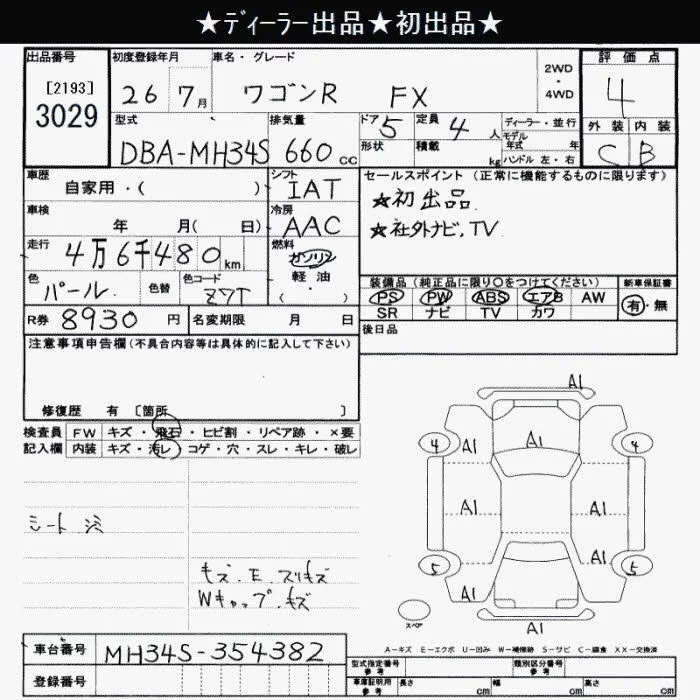 ★ディーラー出品★初出品★
出品番号 初度登録年月 車名・グレード 2WD・4WD 評価点
[2193]
3029 26 7月 ワゴンR FX 4
型式 排気量 ドア 5 定員 4人 ディーラー・並行 外装 内装
形状 積載 kg モデル年式 年
DBA-MH34S 660cc ハンドル 左・右 C B
車歴 自家用・( ) シフト IAT セールスポイント(正常に機能するものに限ります)
車検 年 月( 日) 冷房 AAC ★初出品.
★社外ナビ,TV
走行 4万6千480km 燃料 ガソリン
軽油
( ・ )
色 パール. 色替 色コード Z7T
装備品(純正品に限り○をつけてください) 新車保証書
PS PW ABS エアB AW 有・無
SR ナビ TV カワ
R券 8930円 名変期限 月 日 後日品
注意事項申告欄(不具合内容等は具体的に記入して下さい)
修復歴 有 〔箇所 〕
検査員 FW キズ・飛石・ヒビ割・リペア跡・×要
記入欄 内装 キズ・汚レ・コゲ・穴・スレ・キレ・破レ
A1
4 A1 A1 4
A1 A1
A1
5 A1 5
A1
スペア
シート
キズ.E.スリキズ
Wキャップ.キズ
A-キズ E-エクボ U-凹み W-補修跡 S-サビ C-腐食 XX-交換済
車台番号 MH34S-354382
登録番号
型式指定番号 参考 類別区分番号 参考
車庫証明用 参考 長さ cm 幅 cm 高さ cm